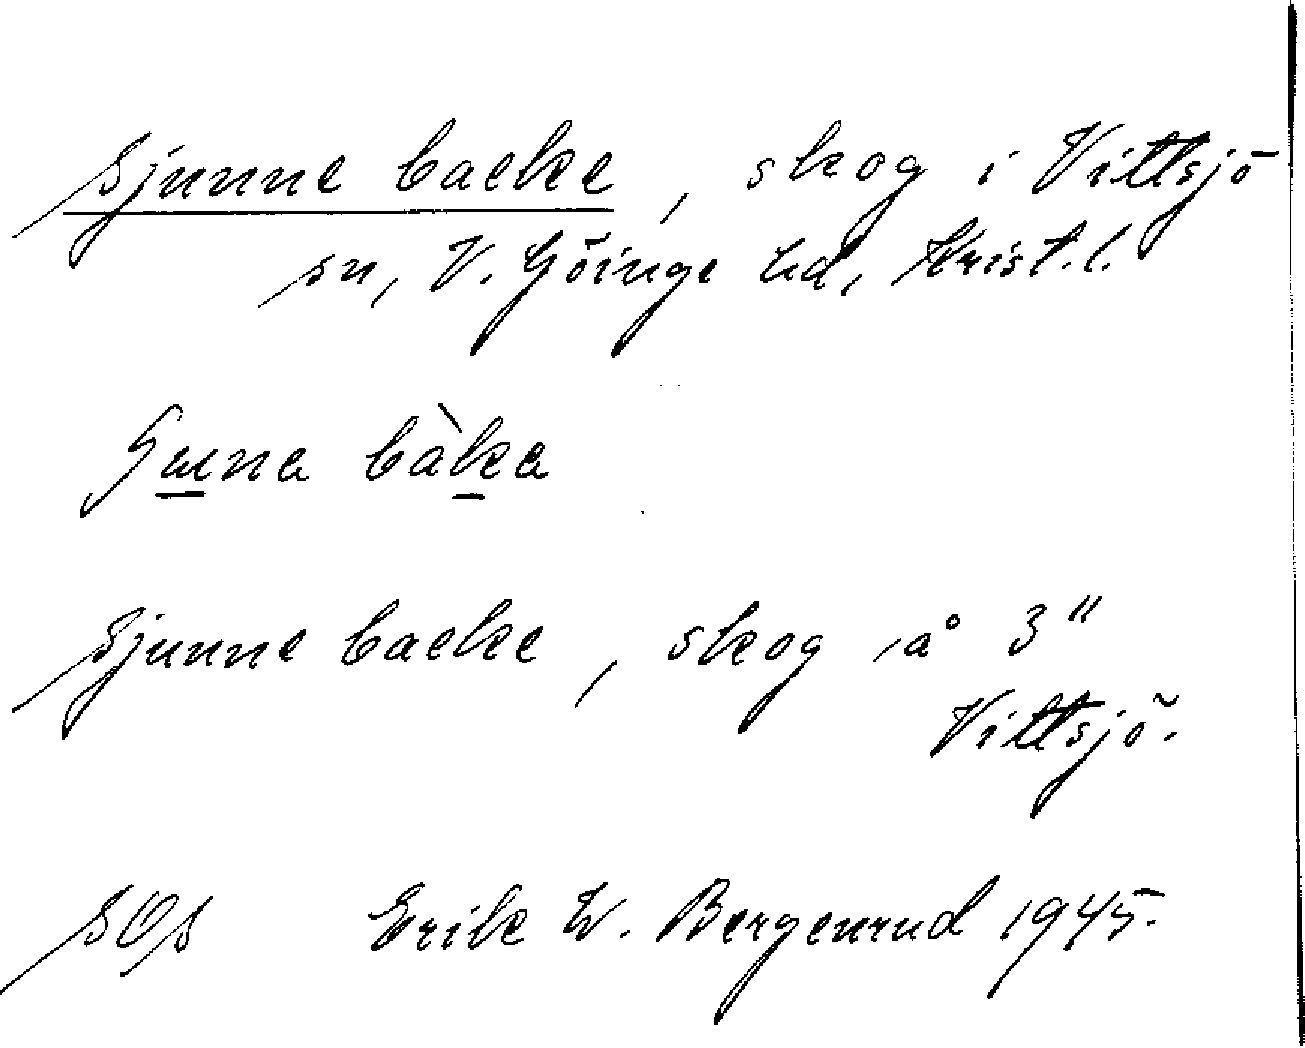 Sjunne backe, skog i Vittsjö
sn, V. Göinge hd, Krist. l.
backe
Sjunne backe, skog å 3"
Vittsjö.
SOS Erik W. Bergenrud 1945.